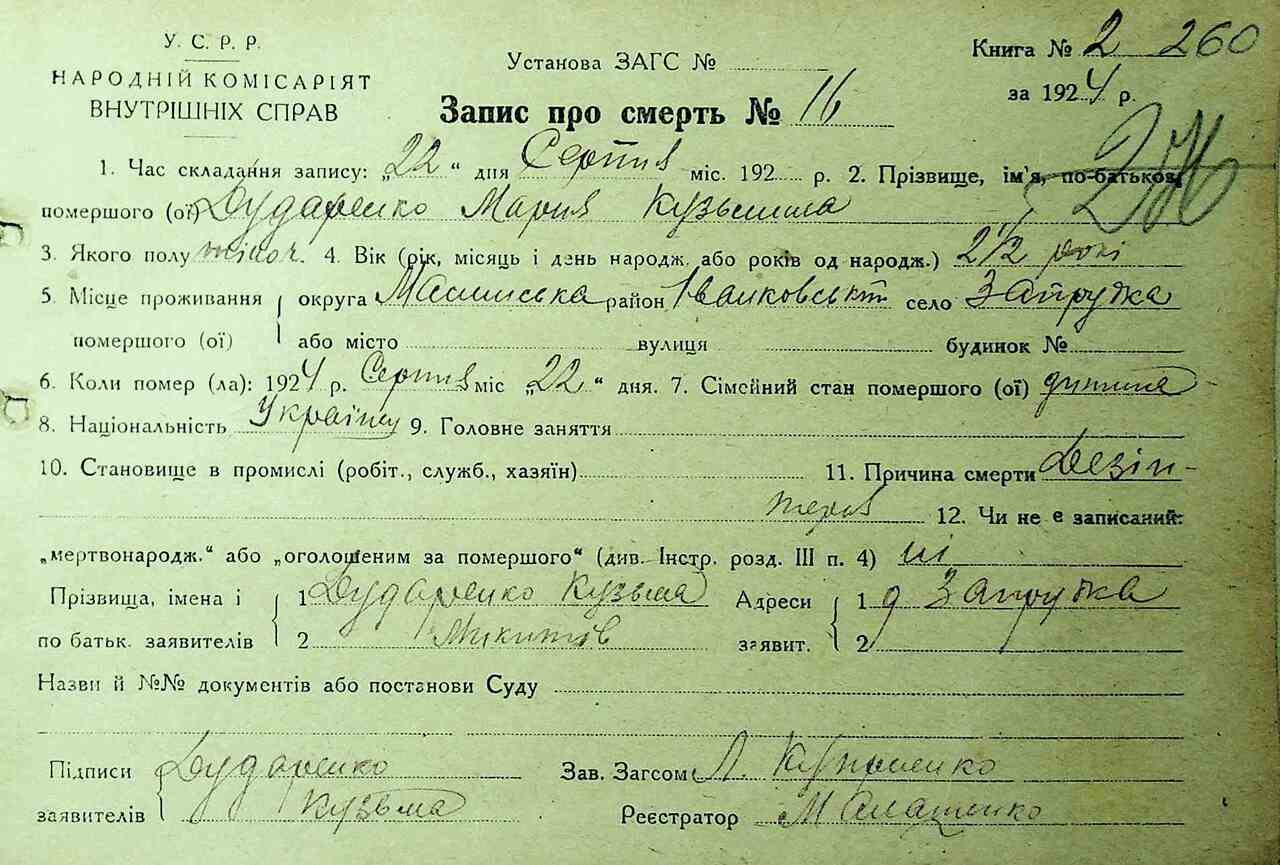 У. С. Р. Р.
НАРОДНІЙ КОМІСАРІЯТ
ВНУТРІШНІХ СПРАВ
Установа ЗАГС №
Книга № 2 260
за 1924 р.
Запис про смерть № 16
1. Час складання запису: „22“ дня Серпня міс. 192 р. 2. Прізвище, ім'я, по-батькові,
помершого (ої) Дударенко Мария Кузьмина
3. Якого полу жіноч. 4. Вік (рік, місяць і день народж. або років од народж.) 2 1/2 рокі
5. Місце проживання округа район Іванковський село Запрудка
помершого (ої) або місто вулиця будинок №
6. Коли помер (ла): 1924 р. Серпня міс „22“ дня. 7. Сімейний стан помершого (ої) дитина
8. Національність 9. Головне заняття
10. Становище в промислі (робіт., служб., хазяїн) 11. Причина смерти Дезін-
терия 12. Чи не є записаний:
„мертвонародж.“ або „оголошеним за помершого“ (див. Інстр. розд. III п. 4) ні
Прізвища, імена і 1 Дударенко Кузьма Адреси 1 д Запрудка
по батьк. заявителів 2 Микитів заявит. 2
Назви й №№ документів або постанови Суду
Підписи Дударенко Зав. Загсом Л.
заявителів Кузьма Реєстратор